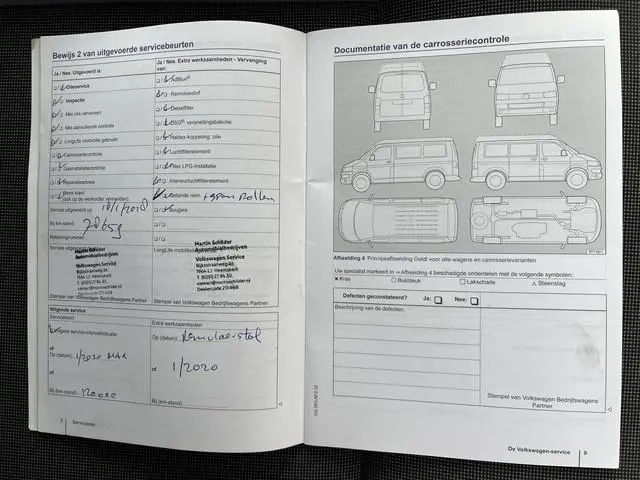 Bewijs 2 van uitgevoerde servicebeurten
Ja / Nee: Uitgevoerd is:
Ja / Nee: Extra werkzaamheden - Vervanging van:
Olieservice
AdBlue®
Inspectie
Remvloeistof
Met olie verversen
Dieselfilter
Met aanvullende controle
DSG® versnellingsbakolie
LongLife motorolie gebruikt
Haldex-koppeling: olie
Carrosseriecontrole
Luchtfilterelement
Geïnstalleerde
Filter LPG-installatie
Reparatieadvies
Interieurluchtfilterelement
Wens klant
(ook op de werkorder vermelden)
Service uitgevoerd op:
/1/2018
Bougies
Bij km-stand:
Rekeningnummer
Service uitgevoerd:
LongLife
Martin Schilder
Automobielbedrijven
Volkswagen Service
Rijksstraatweg
1964 LJ Heemskerk
Tel. (0251) 27 84 30
Martin Schilder
Automobielbedrijven
Volkswagen Service
Rijksstraatweg
1964 LJ Heemskerk
Tel. (0251) 27 84 30
Stempel van Volkswagen Bedrijfswagens Partner
Stempel van Volkswagen Bedrijfswagens Partner
Volgende service
Servicesoort
Extra werkzaamheden
Volgens service-intervalindicatie
Op (datum)
of
Op (datum) 1/2020 MAX
of 1/2020
of
Bij (km-stand) 120000
Bij (km-stand)
7
Serviceplan
Documentatie van de carrosseriecontrole
Afbeelding 4 Principeafbeelding Geldt voor alle wagens en carrosserievarianten
Uw specialist markeert in ⇒ Afbeelding 4 beschadigde onderdelen met de volgende symbolen:
✕ Kras
□ Buil/deuk
○ Lakschade
△ Steenslag
Defecten geconstateerd?
Ja:
Nee:
Beschrijving van de defecten:
Stempel van Volkswagen Bedrijfswagens
Partner
De Volkswagen-service
9